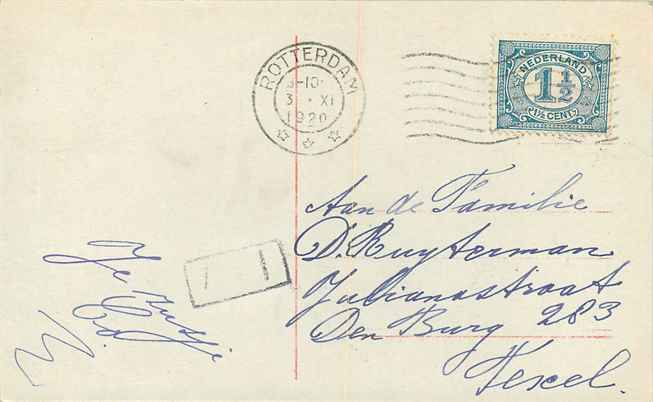 ROTTERDAM
3 · XI
1920
NEDERLAND
1 1/2
1½ CENT
Aan de Familie
D. Ruyterman
Julianastraat
Den Burg 283
Texel.
Je zusje
Co.